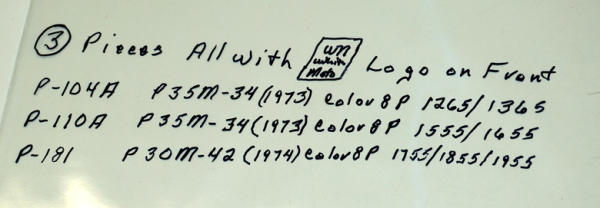 ③ Pieces All with wn white Moto Logo on Front
P-104A P35M-34(1973) Color 8P 1265/1365
P-110A P35M-34(1973) Color 8P 1555/1655
P-181 P30M-42 (1974) Color 8P 1755/1855/1955